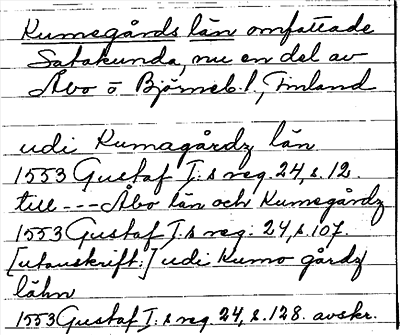 Kumogårds län omfattade
Satakunda, nu en del av
Åbo o Björneb. l., Finland
udi Kumagårdz län
1553 Gustaf I:s reg. 24, s. 12.
till --- Åbo län och Kumogårdz
1553 Gustaf I:s reg. 24, s. 107.
[utanskrift:] udi Kumo gårdz
lähn
1553 Gustaf I:s reg. 24, s. 128. avskr.